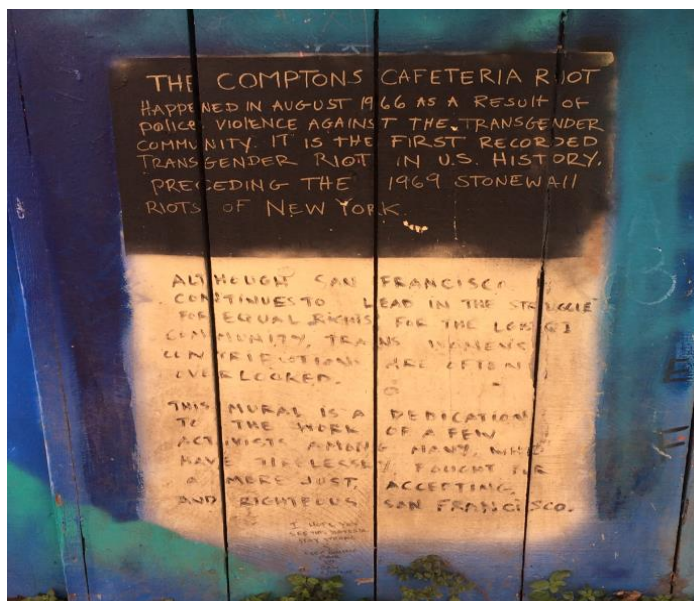 THE COMPTONS CAFETERIA RIOT
HAPPENED IN AUGUST 1966 AS A RESULT OF
POLICE VIOLENCE AGAINST THE TRANSGENDER
COMMUNITY. IT IS THE FIRST RECORDED
TRANSGENDER RIOT IN U.S. HISTORY,
PRECEDING THE 1969 STONEWAll
RIOTS OF NEW YORK.
ALTHOUGH SAN FRANCISCO
CONTINUES TO LEAD IN THE STRUGGLE
FOR EQUAL RIGHTS FOR THE
COMMUNITY, TRANS WOMEN'S
ARE OFTEN
OVERLOOKED.
THIS MURAL IS A DEDICATION
TO THE WORK OF A FEW
ACTIVISTS AMONG MANY, WHO
HAVE TIRELESSLY FOUGHT FOR
A MORE JUST, ACCEPTING,
AND RIGHTEOUS SAN FRANCISCO.
I HOPE YOU